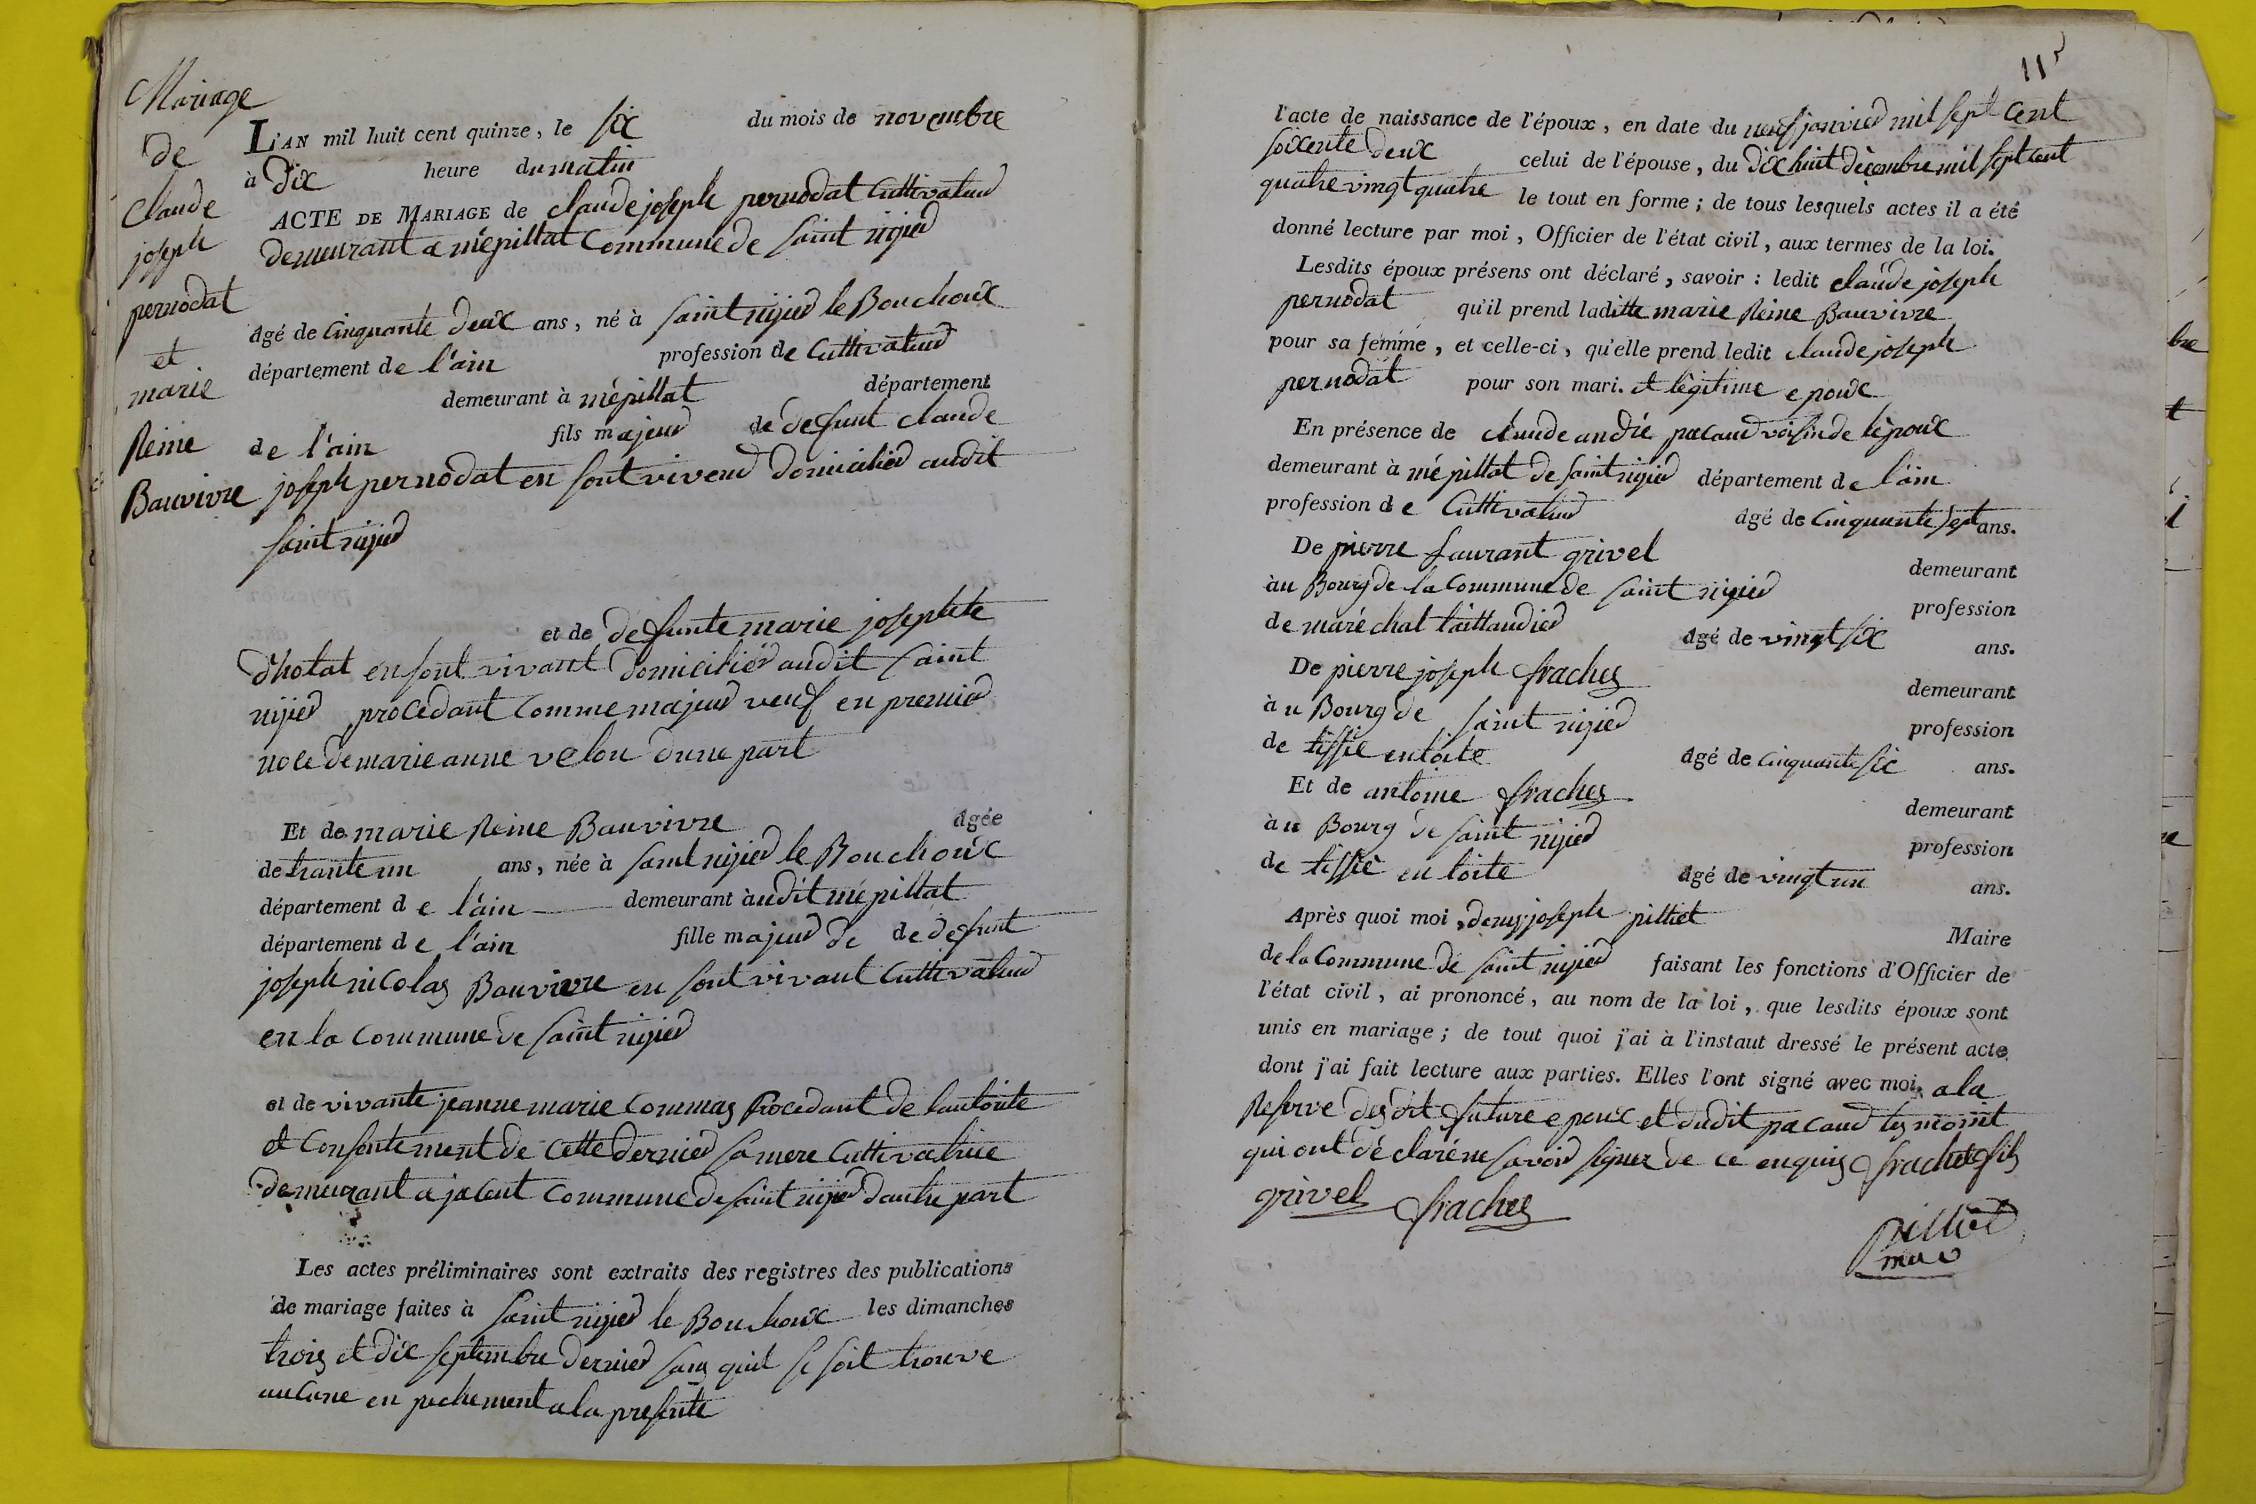 Mariage
de
Claude
joseph
pernodat
et
marie
Reine
Bauvivre
L'AN mil huit cent quinze, le six du mois de novembre
à Dix heure du matin
ACTE DE MARIAGE de claude joseph pernodat Cultivateur
demeurant a mépillat Commune de saint nizier
agé de Cinquante deux ans, né à saint nizier le Bouchoux
département de l'ain profession de Cultivateur
demeurant à mépillat département
de l'ain fils majeur de defunt claude
joseph pernodat en sont viveur domicilier audit
saint nizier
et de defunte marie josephte
d'holat en sont vivant domicilier audit saint
nizier procedant comme majeur veuf en premier
noce de marie anne velon d'une part
Et de marie Reine Bauvivre agée
de trante un ans, née à saint nizier le Bouchoux
département de l'ain demeurant audit mépillat
département de l'ain fille majeur de de defunt
joseph nicolas Bauvivre en sont vivant Cultivateur
en la Commune de saint nizier
et de vivante jeanne marie Commas Procedant de lautorite
et Consentement de cette dernier sa mere Cultivatrice
demeurant a jacent Commune de saint nizier dautre part
Les actes préliminaires sont extraits des registres des publications
de mariage faites à saint nizier le Bouchoux les dimanches
trois et dix septembre dernier sans quil se soit trouve
aucune en pechement a la presente
115
l'acte de naissance de l'époux, en date du neuf janvier mil sept cent
soixente deux celui de l'épouse, du dix huit décembre mil sept cent
quatre vingt quatre le tout en forme; de tous lesquels actes il a été
donné lecture par moi, Officier de l'état civil, aux termes de la loi.
Lesdits époux présens ont déclaré, savoir: ledit claude joseph
pernodat qu'il prend laditte marie Reine Bauvivre
pour sa femme, et celle-ci, qu'elle prend ledit claude joseph
pernodat pour son mari. et légitime epoux
En présence de claude andré pacaud voisin de lépoux
demeurant à mépillat de saint nizier département de l'ain
profession de Cultivateur agé de Cinquante sept ans.
De pierre Laurant grivel demeurant
au Bourg de la Commune de saint nizier profession
de maréchal taillandier agé de vingt six ans.
De pierre joseph frachez demeurant
au Bourg de saint nizier profession
de tissié en toite agé de cinquante six ans.
Et de antoine frachez demeurant
au Bourg de saint nizier profession
de tissié en toite agé de vingt un ans.
Après quoi moi, denis joseph pilliet Maire
de la Commune de saint nizier faisant les fonctions d'Officier de
l'état civil, ai prononcé, au nom de la loi, que lesdits époux sont
unis en mariage; de tout quoi j'ai à l'instaut dressé le présent acte
dont j'ai fait lecture aux parties. Elles l'ont signé avec moi. a la
Reserve des dit future epoux et dudit pacaud tesmoint
qui ont déclaré ne savoir signer de ce enquis frachez fils
grivel frachez
pilliet